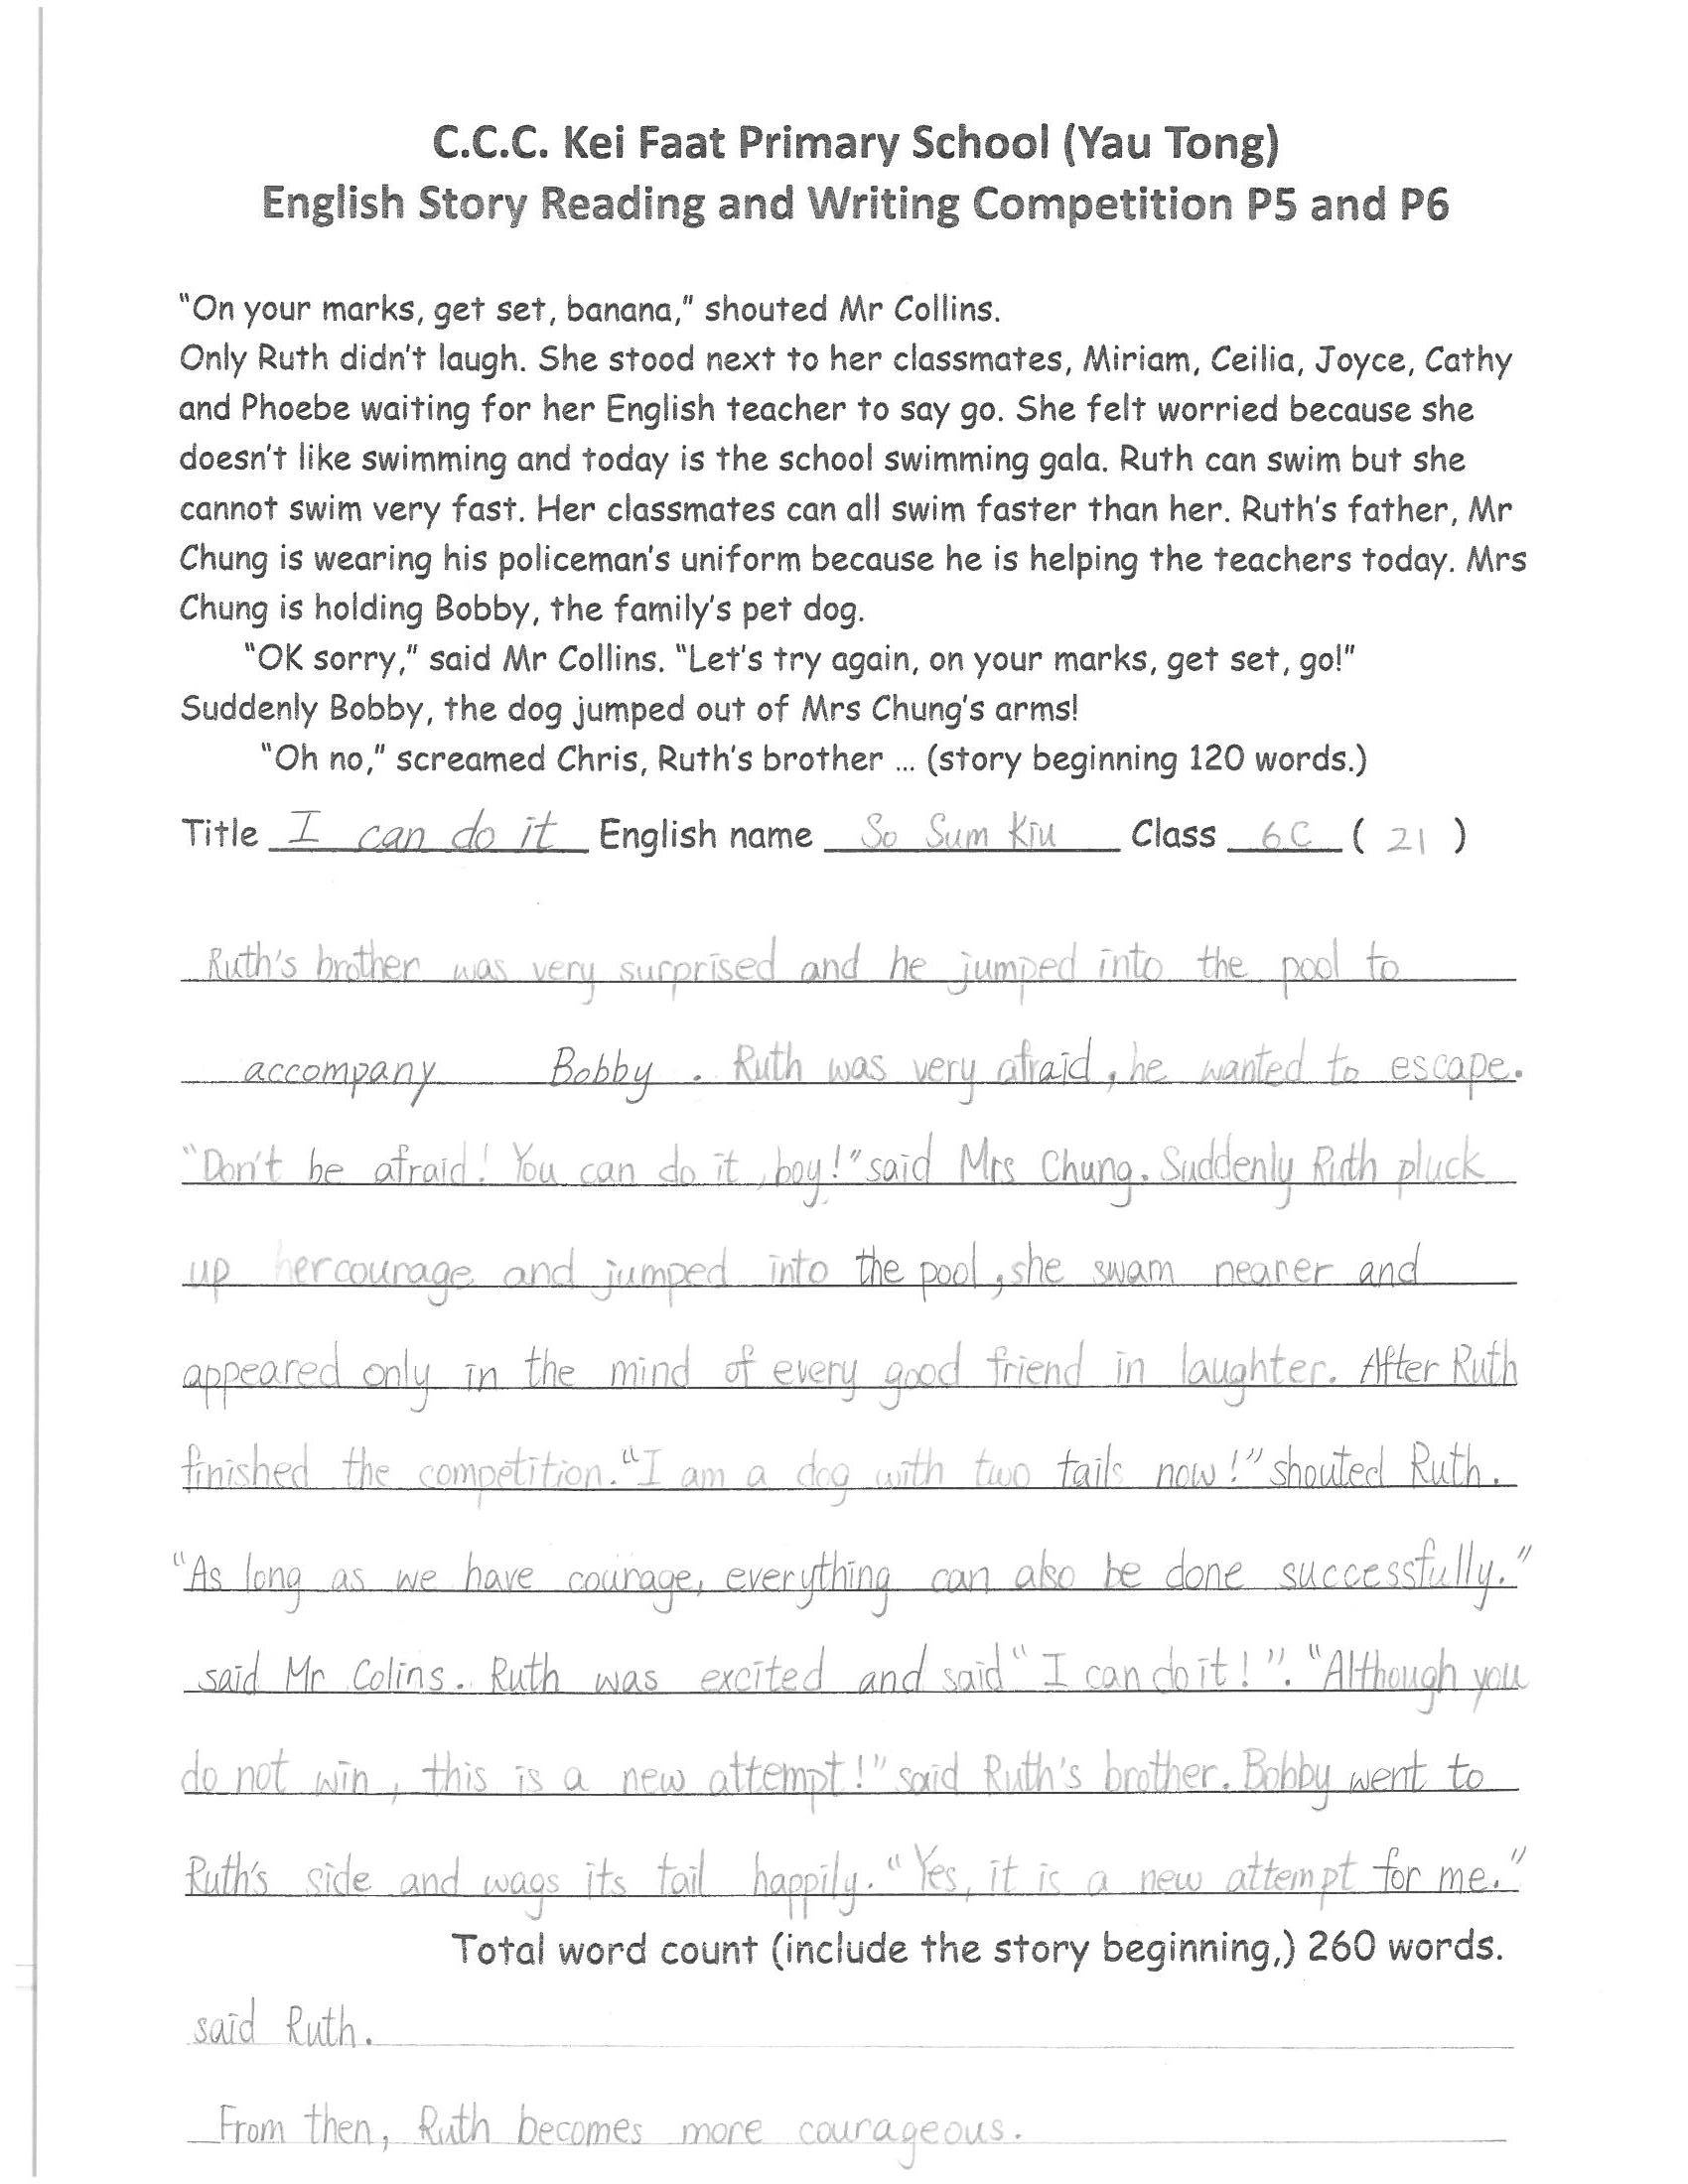 C.C.C. Kei Faat Primary School (Yau Tong)
English Story Reading and Writing Competition P5 and P6
"On your marks, get set, banana," shouted Mr Collins.
Only Ruth didn't laugh. She stood next to her classmates, Miriam, Ceilia, Joyce, Cathy
and Phoebe waiting for her English teacher to say go. She felt worried because she
doesn't like swimming and today is the school swimming gala. Ruth can swim but she
cannot swim very fast. Her classmates can all swim faster than her. Ruth's father, Mr
Chung is wearing his policeman's uniform because he is helping the teachers today. Mrs
Chung is holding Bobby, the family's pet dog.
"OK sorry," said Mr Collins. "Let's try again, on your marks, get set, go!"
Suddenly Bobby, the dog jumped out of Mrs Chung's arms!
"Oh no," screamed Chris, Ruth's brother ... (story beginning 120 words.)
Title I can do it English name So Sum Kiu Class 6C ( 21 )
Ruth's brother was very surprised and he jumped into the pool to
accompany Bobby. Ruth was very afraid, he wanted to escape.
"Don't be afraid! You can do it, boy!" said Mrs Chung. Suddenly Ruth pluck
up her courage and jumped into the pool, she swam nearer and
appeared only in the mind of every good friend in laughter. After Ruth
finished the competition. "I am a dog with two tails now!" shouted Ruth.
"As long as we have courage, everything can also be done successfully."
said Mr Colins. Ruth was excited and said "I can do it!". "Although you
do not win, this is a new attempt!" said Ruth's brother. Bobby went to
Ruth's side and wags its tail happily. "Yes, it is a new attempt for me."
Total word count (include the story beginning,) 260 words.
said Ruth.
From then, Ruth becomes more courageous.